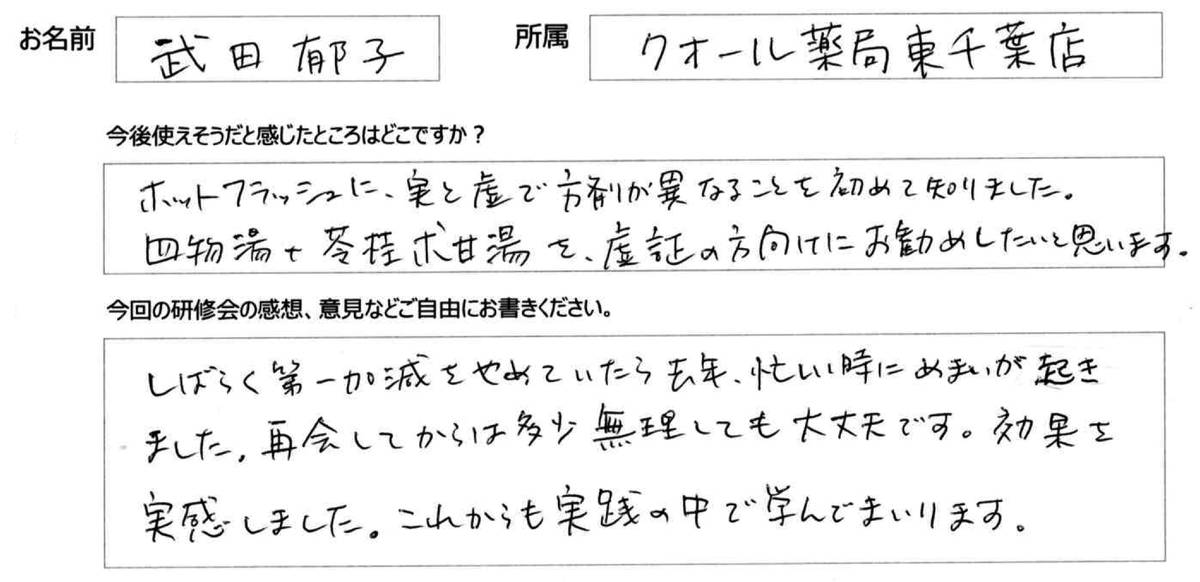 お名前 武田郁子 所属 クオール薬局東千葉店
今後使えそうだと感じたところはどこですか？
ホットフラッシュに、実と虚で方剤が異なることを初めて知りました。
四物湯＋苓桂朮甘湯を、虚証の方向けにお勧めしたいと思います。
今回の研修会の感想、意見などご自由にお書きください。
しばらく第一加減をやめていたら去年、忙しい時にめまいが起き
ました。再会してからは多少無理しても大丈夫です。効果を
実感しました。これからも実践の中で学んでまいります。